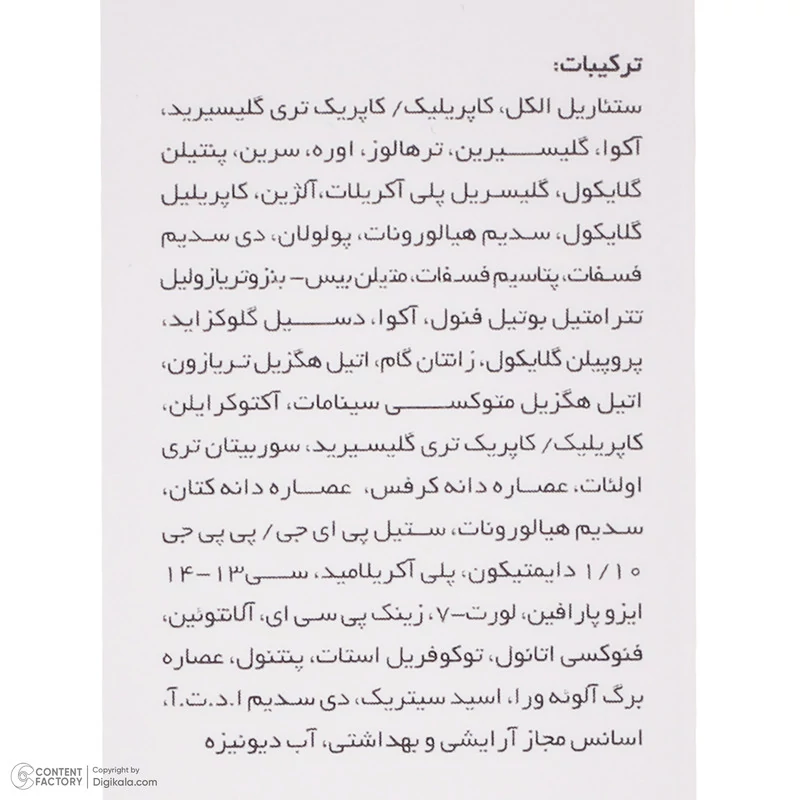 ترکیبات:
ستئاریل الکل، کاپریلیک/ کاپریک تری گلیسیرید،
آکوا، گلیسیرین، ترهالوز، اوره، سرین، پنتیلن
گلایکول، گلیسریل پلی آکریلات،آلژین، کاپریلیل
گلایکول، سدیم هیالورونات، پولولان، دی سدیم
فسفات، پتاسیم فسفات، متیلن بیس- بنزوتریازولیل
تترامتیل بوتیل فنول، آکوا، دسیل گلوکزاید،
پروپیلن گلایکول، زانتان گام، اتیل هگزیل تریازون،
اتیل هگزیل متوکسی سینامات، آکتوکرایلن،
کاپریلیک/ کاپریک تری گلیسیرید، سوربیتان تری
اولئات، عصاره دانه کرفس، عصاره دانه کتان،
سدیم هیالورونات، ستیل پی ای جی/ پی پی جی
۱/۱۰ دایمتیکون، پلی آکریلامید، سی۱۳-۱۴
ایزوپارافین، لورت-۷، زینک پی سی ای، آلانتوئین،
فنوکسی اتانول، توکوفریل استات، پنتنول، عصاره
برگ آلوئه ورا، اسید سیتریک، دی سدیم ا.د.ت.آ،
اسانس مجاز آرایشی و بهداشتی، آب دیونیزه
CONTENT FACTORY
Copyright by
Digikala.com